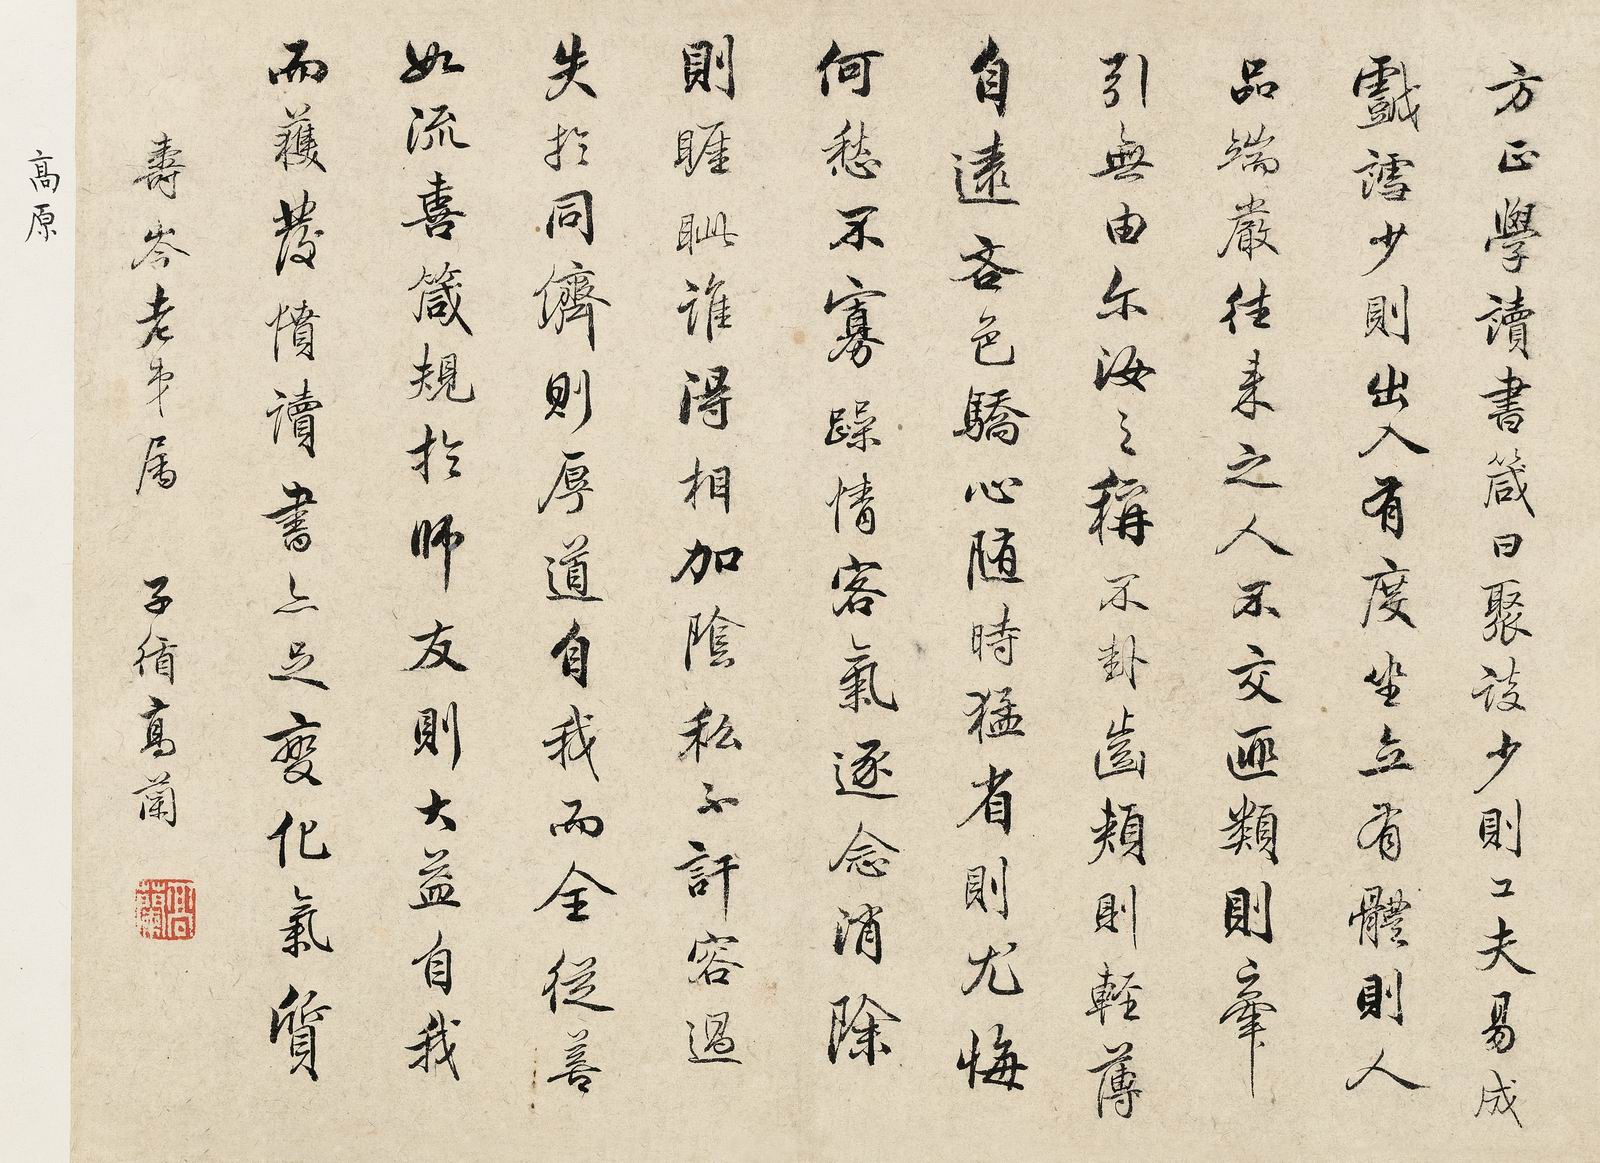 方正學讀書箴曰聚談少則工夫易成
戲謔少則出入有度坐立有體則人
品端嚴往来之人不交匪類則牽
引無由尔汝之稱不卦齒頰則輕薄
自遠吝色驕心随時猛省則尤悔
何愁不寡躁情客氣逐念消除
則睚眦誰得相加陰私不訐容過
失於同儕則厚道自我而全從善
如流喜箴規於師友則大益自我
而获發憤讀書亦足变化氣質
壽岑老弟属 子循高蘭
高蘭
高原